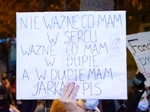 NIE WAŻNE CO MAM
W SERCU
WAŻNE CO MAM
W DUPIE
A W DUPIE MAM
JARKA I PIS